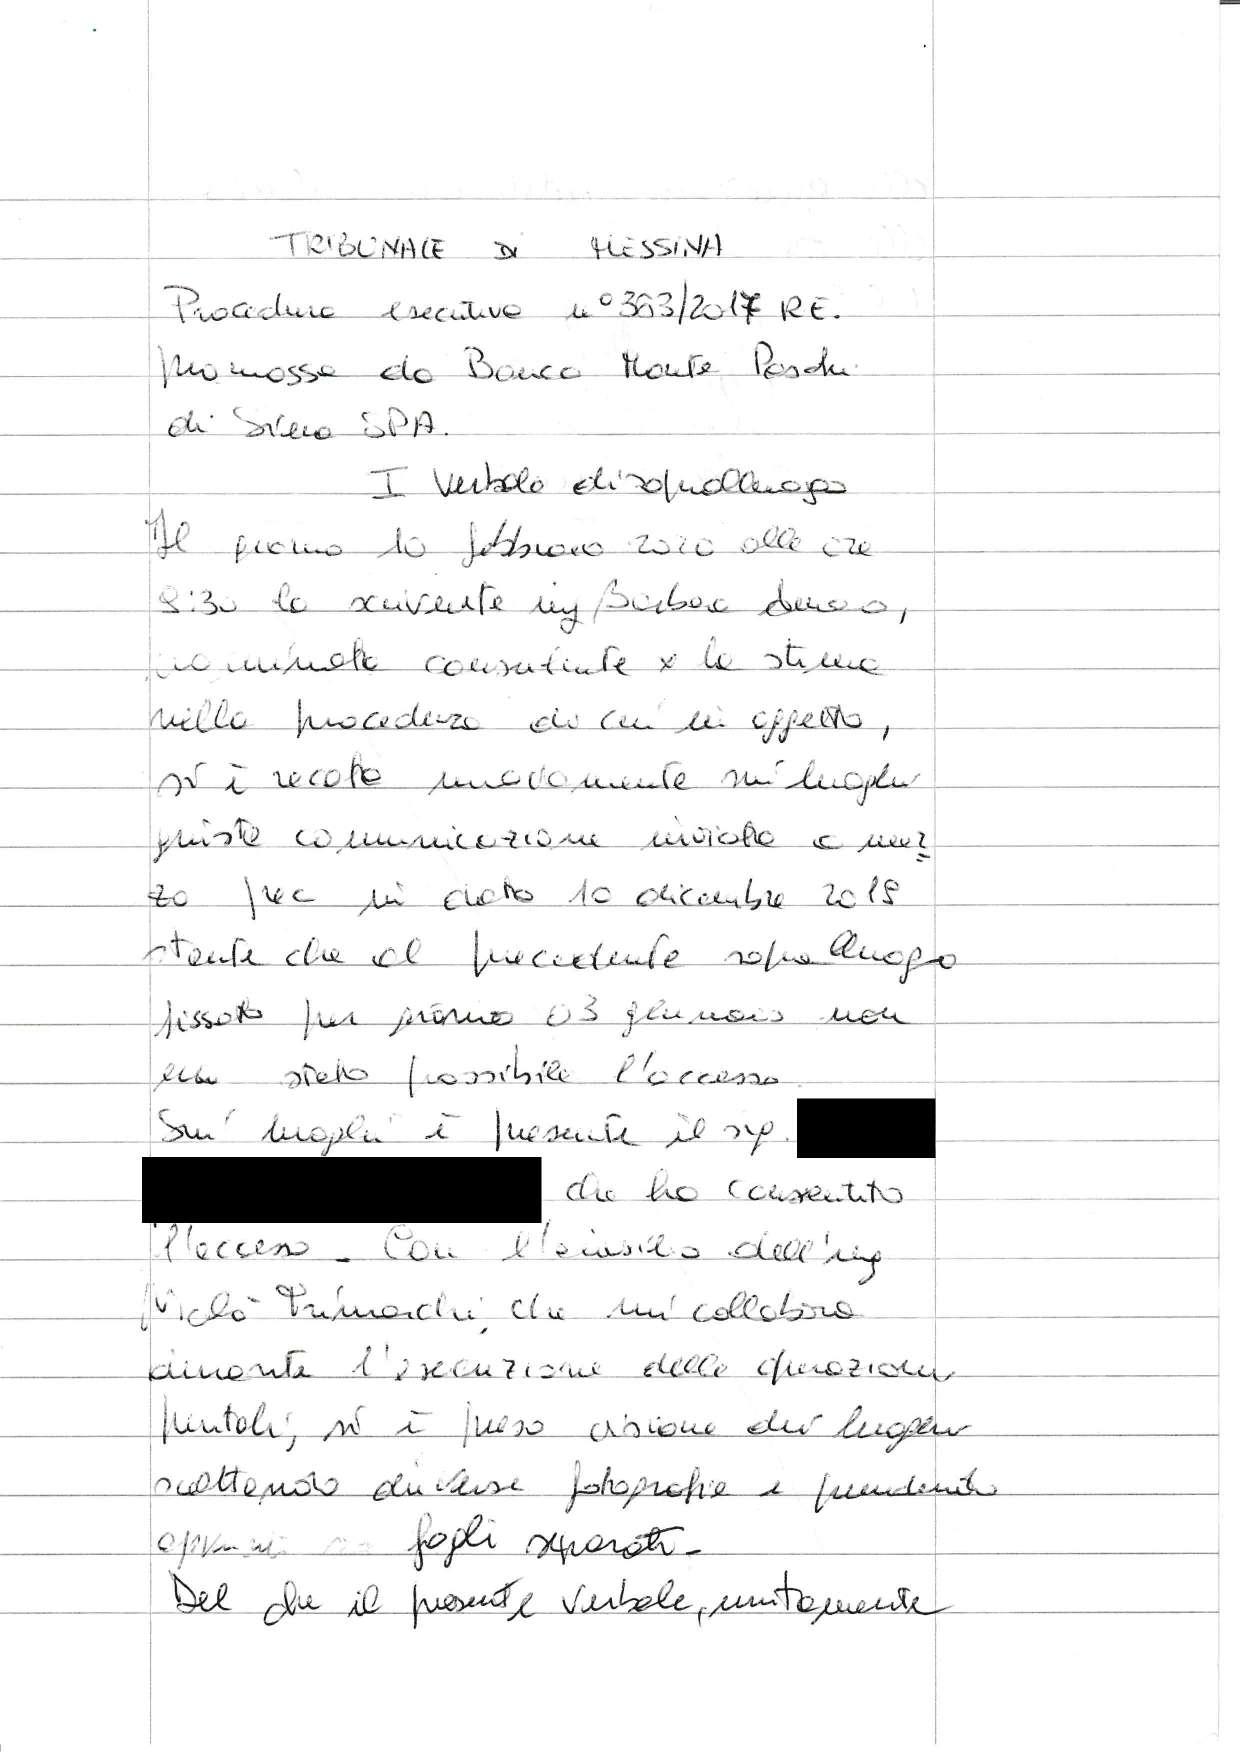 TRIBUNALE DI MESSINA
Procedura esecutiva n° 393/2017 RE.
promossa da Banca Monte Paschi
di Siena SPA.
I Verbale di sopralluogo
Il giorno 10 febbraio 2020 alle ore
9:30 la scrivente ing Barbara
nominata consulente x la stima
nella procedura di cui in oggetto,
si è recata nuovamente sui luoghi
giusta comunicazione inviata a mez
zo pec in data 10 dicembre 2019
stante che al precedente sopralluogo
fissato per giorno 03 gennaio non
era stato possibile l'accesso.
Sui luoghi è presente il sig.
che ha consentito
l'accesso - Con l'ausilio dell'ing
Trimarchi, che mi collabora
durante l'esecuzione delle operazioni
peritali, si è preso visione dei luoghi
scattando diverse fotografie e prendendo
appunti su fogli separati -
Del che il presente verbale, unitamente